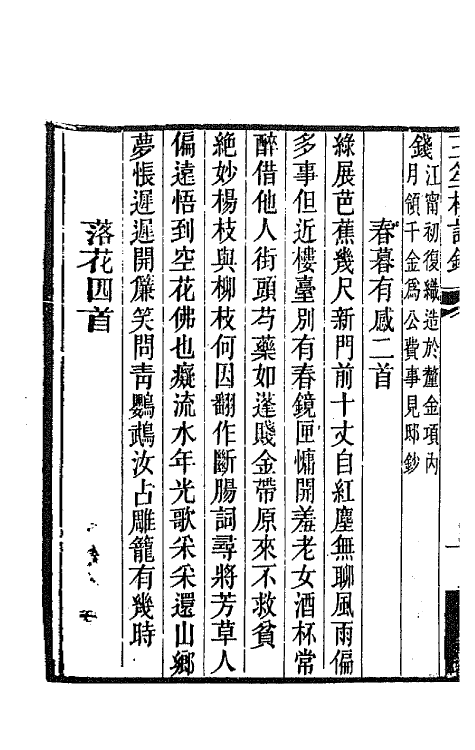 錢江甯初復織造於釐金項內
月領千金爲公費事見邸鈔
春暮有感二首
綠展芭蕉幾尺新門前十丈自紅塵無聊風雨偏
多事但近樓臺別有春鏡匣慵開羞老女酒杯常
醉借他人街頭芍藥如蓬賤金帶原來不救貧
絕妙楊枝與柳枝何因翻作斷腸詞尋將芳草人
偏遠悟到空花佛也癡流水年光歌采采還山鄉
夢悵遲遲開簾笑問靑鸚鵡汝占雕籠有幾時
落花四首